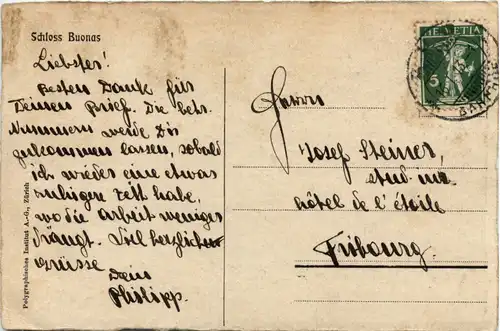 Schloss Buonas
Liebster!
Besten Dank für
Deinen Brief. Die betr.
Nummern werde Dir
zukommen lassen, sobald
ich wieder eine etwas
ruhigere Zeit habe,
wo die Arbeit weniger
drängt. Viel herzliche
Grüsse
Dein
Philipp.
Polygraphisches Institut A.-G., Zürich
HELVETIA
5
Herrn
Josef Steiner,
stud.
hôtel de l'étoile
Fribourg.